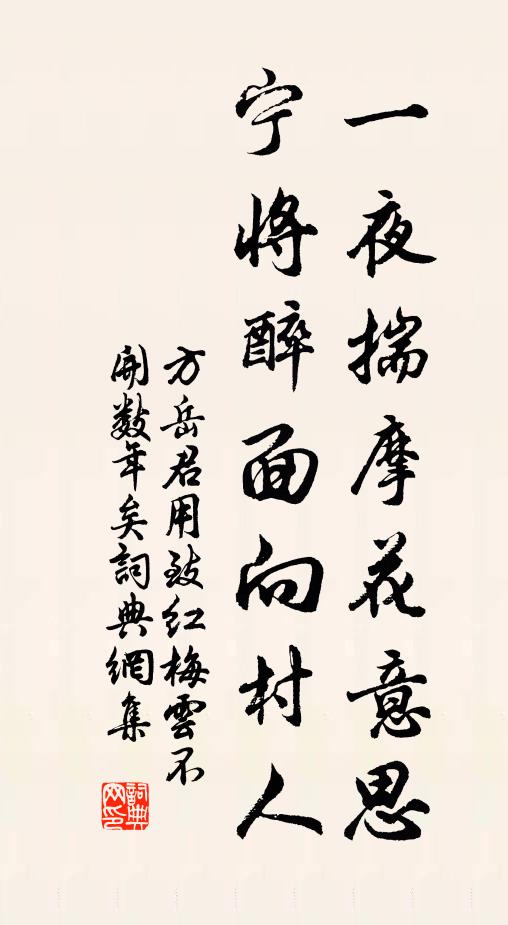 一夜揣摩花意思
宁將醉面向村人
方岳君用致红梅雲不
開数年矣詞典網集
詞典网印